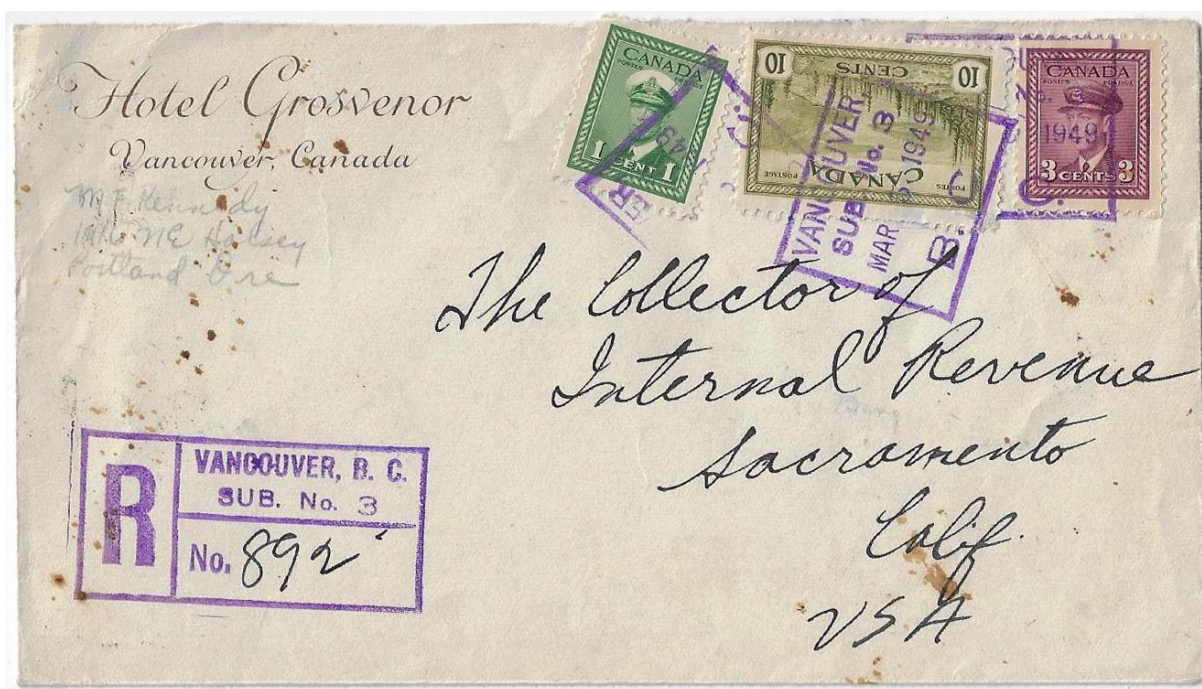 Hotel Grosvenor
Vancouver, Canada
M F Kennedy
1916 NE Halsey
Portland Ore
CANADA
POSTES POSTAGE
1 CENT 1
ER
49
10 CENTS 10
CANADA
POSTES POSTAGE
VANCOUVER
SUB No. 3
MAR 1949
B. C.
CANADA
POSTES POSTAGE
No. 3
1949
3 CENTS 3
C.
The Collector of
Internal Revenue
Sacramento
Calif.
USA
R
VANCOUVER, B. C.
SUB. No. 3
No. 892